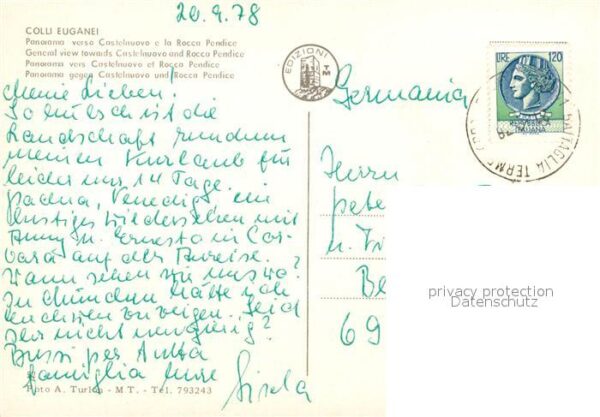 20.9.78
COLLI EUGANEI
Panorama verso Castelnuovo e la Rocca Pendice
General view towards Castelnuovo and Rocca Pendice
Panorama vers Castelnuovo et Rocca Pendice
Panorama gegen Castelnuovo und Rocca Pendice
EDIZIONI
TM
LIRE 120
REPUBBLICA
ITALIANA
BATTAGLIA TERME
Germania
Meine Lieben!
So hübsch ist die
Landschaft rundum
meinen Kurlaub für
leider nur 14 Tage.
Padua, Venedig, ein
lustiges Wiedersehen mit
u. Ernesto in
auf der
Wann sehen wir uns wo?
In München hätte ich
zu zeigen. Seid
Ihr nicht neugierig?
Bussi per tutta
famiglia Eure
Gisela
Herrn
Pete
u.
Be
69
privacy protection
Datenschutz
Foto A. Turlon - MT. - Tel. 793243